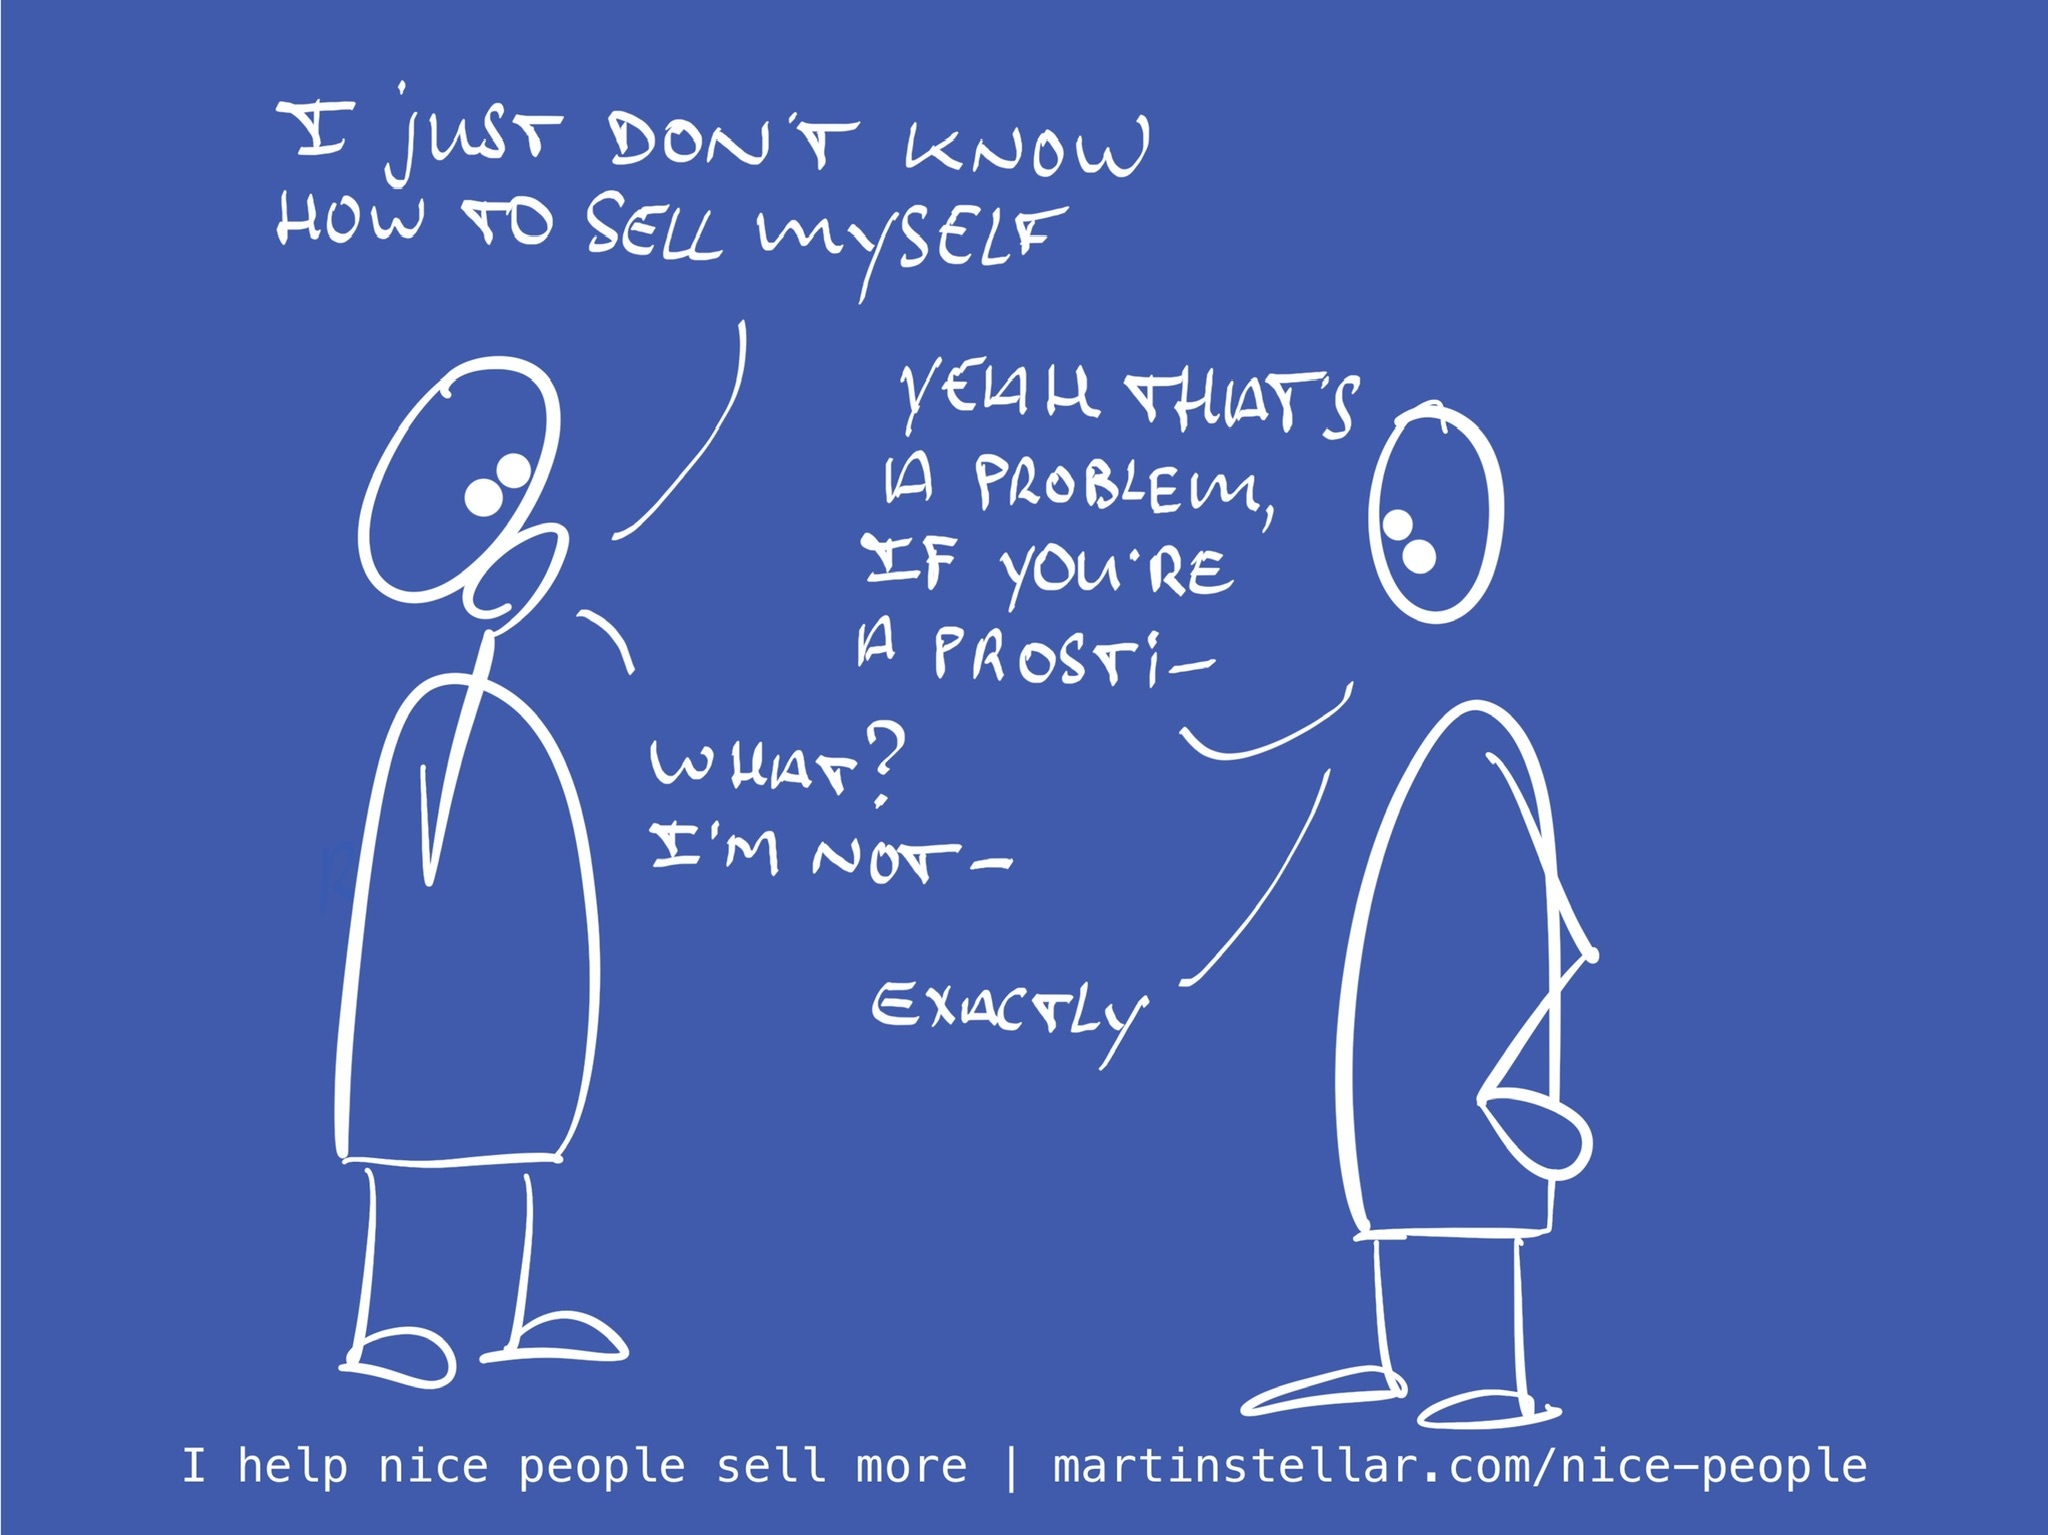 I JUST DON'T KNOW
HOW TO SELL MYSELF
YEAH THAT'S
A PROBLEM,
IF YOU'RE
A PROSTI—
WHAT?
I'M NOT—
EXACTLY
I help nice people sell more | martinstellar.com/nice-people